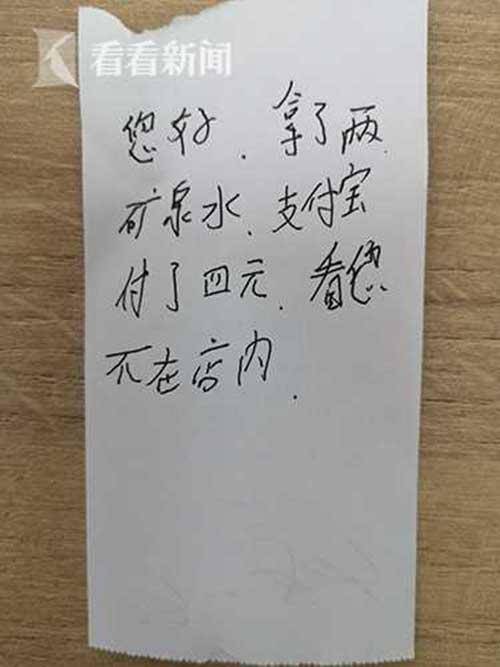 看看新闻
您好，拿了两
矿泉水，支付宝
付了四元，看您
不在店内．